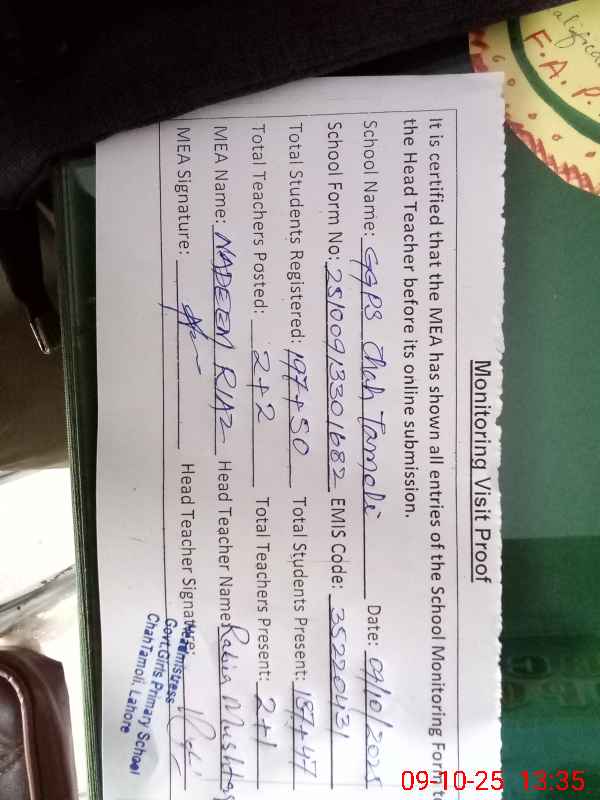 Monitoring Visit Proof
It is certified that the MEA has shown all entries of the School Monitoring Form to
the Head Teacher before its online submission.
School Name: GGPS Chah Tamoli Date: 09/10/2025
School Form No: 25100913301682 EMIS Code: 35220431
Total Students Registered: 197+50 Total Students Present: 187+47
Total Teachers Posted: 2+2 Total Teachers Present: 2+1
MEA Name: NADEEM RIAZ Head Teacher Name: Rabia Mushtaq
MEA Signature: Head Teacher Signature:
Headmistress
Govt Girls Primary School
Chah Tamoli, Lahore
F.A.P.
09-10-25 13:35